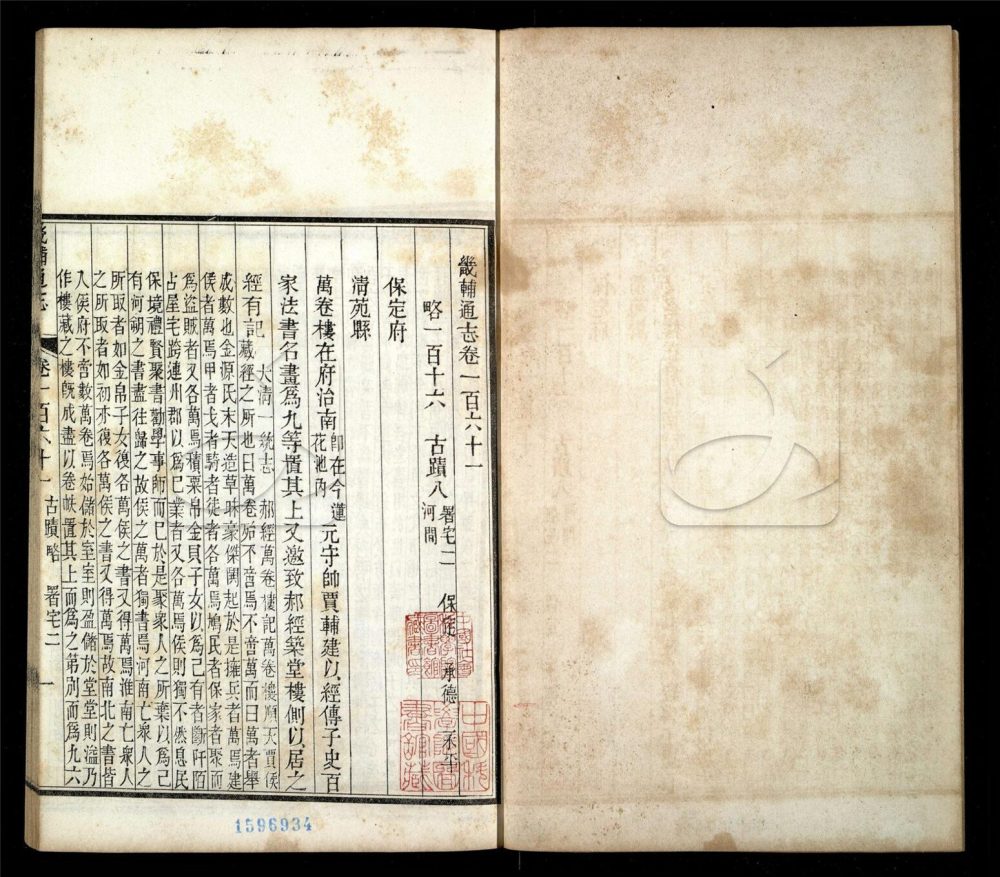 畿輔通志卷一百六十一
略一百十六 古蹟八 署宅二 保定 承德
河間
保定府
淸苑縣
萬卷樓在府治南即在今蓮花池內元守帥賈輔建以經傳子史百
家法書名畫爲九等置其上又邀致郝經築堂樓側以居之
經有記 大清一統志 郝經萬卷樓記萬卷樓順天賈侯
藏經之所也曰萬卷殆不啻焉不啻萬而曰萬者舉
成數也金源氏末天造草昧豪傑闢起於是擁兵者萬焉建
侯者萬焉甲者戈者騎者徒者各萬焉鳩民者保家者聚而
爲盜賊者又各萬焉積粟帛金貝子女以爲己有者斷阡陌
占屋宅跨連州郡以爲已業者又各萬焉侯則獨不然息民
保境禮賢聚書勸學事師而已於是聚衆人之所棄以爲己
有河朔之書盡往歸之故侯之萬者獨書焉河南亡衆人之
所取者如金帛子女復各萬侯之書又得萬焉淮南亡衆人
之所取者如初亦復各萬侯之書又得萬焉故南北之書皆
入侯府不啻數萬卷焉始儲於室室則盈儲於堂堂則溢乃
作樓藏之樓旣成盡以卷帙置其上而爲之第別而爲九六
輔通志 卷一百六十一 古蹟略 署宅二 一
1596934